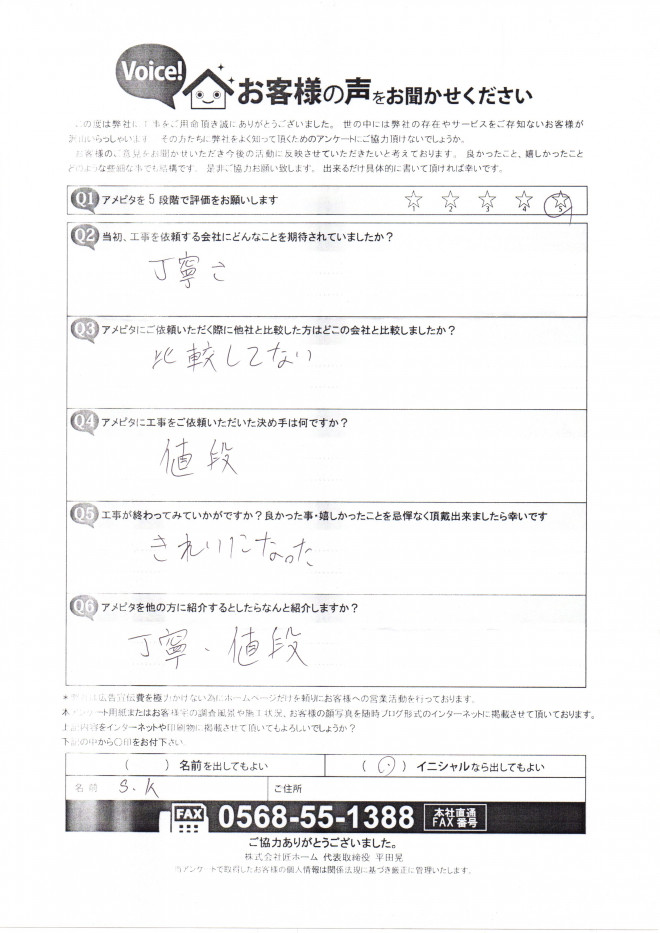 Voice!
お客様の声をお聞かせください
この度は弊社に工事をご用命頂き誠にありがとうございました。 世の中には弊社の存在やサービスをご存知ないお客様が
沢山いらっしゃいます。 その方たちに弊社をよく知って頂くためのアンケートにご協力頂けないでしょうか。
お客様のご意見をお聞かせいただき今後の活動に反映させていただきたいと考えております。 良かったこと、嬉しかったこと
どのような些細な事でも結構です。 是非ご協力お願い致します。 出来るだけ具体的に書いて頂ければ幸いです。
Q1 アメピタを5段階で評価をお願いします
1 2 3 4 5
Q2 当初、工事を依頼する会社にどんなことを期待されていましたか？
丁寧さ
Q3 アメピタにご依頼いただく際に他社と比較した方はどこの会社と比較しましたか？
比較してない
Q4 アメピタに工事をご依頼いただいた決め手は何ですか？
値段
Q5 工事が終わってみていかがですか？良かった事・嬉しかったことを忌憚なく頂戴出来ましたら幸いです
きれいになった
Q6 アメピタを他の方に紹介するとしたらなんと紹介しますか？
丁寧、値段
＊弊社は広告宣伝費を極力かけない為にホームページだけを頼りにお客様への営業活動を行っております。
本アンケート用紙またはお客様宅の調査風景や施工状況、お客様の顔写真を随時ブログ形式のインターネットに掲載させて頂いております。
上記内容をインターネットや印刷物に掲載させて頂いてもよろしいでしょうか？
下記の中から〇印をお付下さい。
（　　）名前を出してもよい （ 〇 ）イニシャルなら出してもよい
名前 S.K ご住所
FAX 0568-55-1388 本社直通 FAX番号
ご協力ありがとうございました。
株式会社匠ホーム 代表取締役 平田晃
当アンケートで取得したお客様の個人情報は関係法規に基づき厳正に管理いたします。